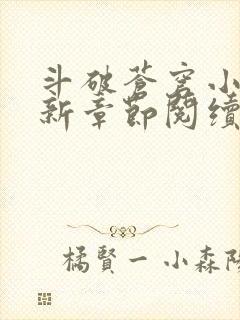 斗破苍穹小
新章節閱續
橘賢一 小森陽